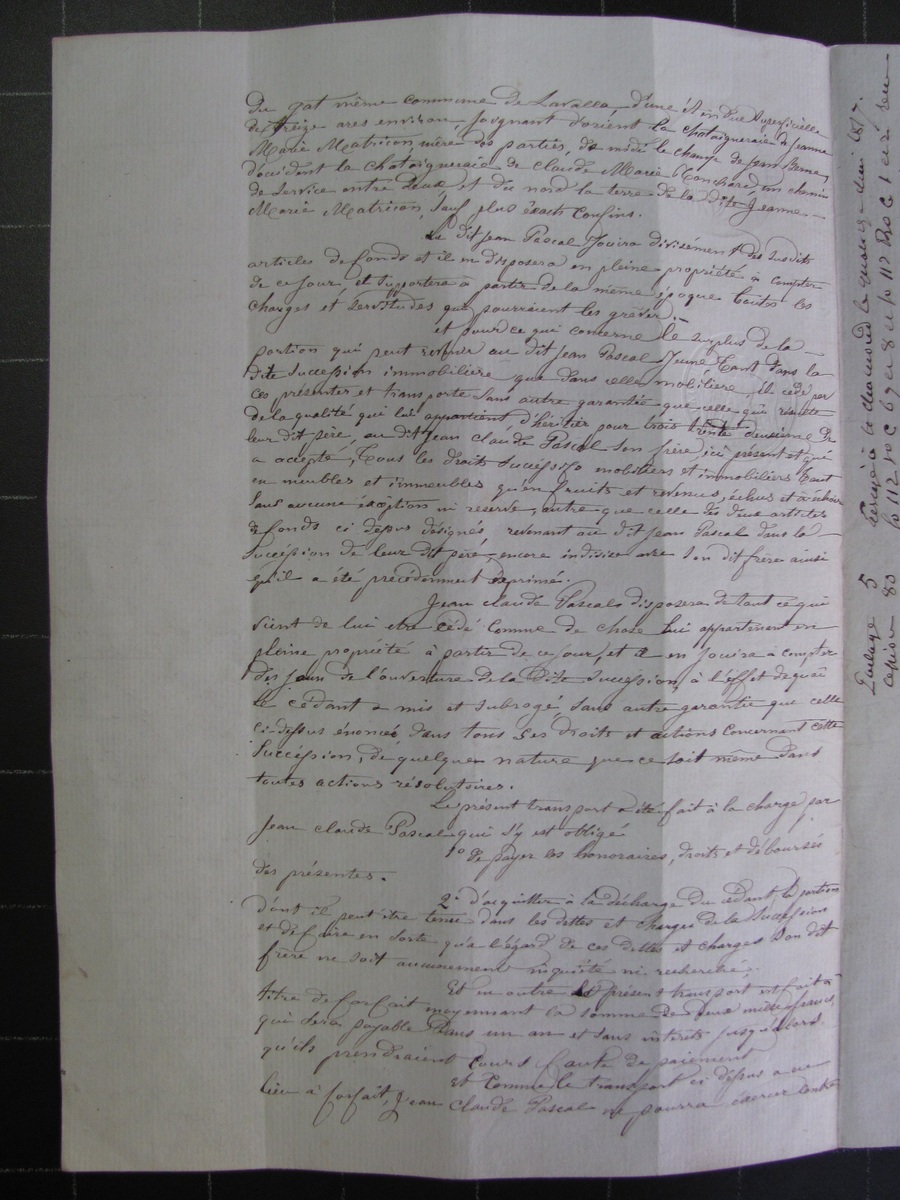 Du gat même commune de Lavalla, d'une étendue superficielle
de treize ares environ, joignant d'orient la chataigneraie de Jeanne
Marie Matricon, mère des parties, de midi le champ de
d'occident la chataigneraie de Claude Marie un chemin
de service entre deux et du nord la terre de la dite Jeanne
Marie Matricon, sauf plus exacts confins.
Le dit Jean Pascal jouira divisément des susdits
articles de fonds et il en disposera en pleine propriété à compter
de ce jour, et supportera à partir de la même époque toutes les
charges et servitudes qui pourraient les grever.
et pour ce qui concerne le surplus de la
portion qui peut revenir au dit Jean Pascal jeune tant dans la
dite succession immobilière que dans celle mobilière, il cède par
ces présentes et transporte sans autre garantie que celle qui résulte
de la qualité qui lui appartient d'héritier pour trois trente deuxième de
leur dit père, au dit Jean Claude Pascal son frère, ici présent et qui
a accepté, tous les droits successifs mobiliers et immobiliers tant
en meubles et immeubles qu'en fruits et revenus, échus et à échoir
sans aucune exéption ni reserve, autre que celle des deux articles
de fonds ci dessus désignés revenant au dit Jean Pascal dans la
succession de leur dit père, encore indivise avec son dit frère ainsi
qu'il a été précédemment exprimé.
Jean Claude Pascal disposera de tout ce qui
vient de lui etre cédé comme de chose lui appartenant en
pleine propriété à partir de ce jour, et il en jouira à compter
des jour de l'ouverture de la dite succession, à l'effet de quoi
le cédant a mis et subrogé, sans autre garantie que celle
ci-dessus énoncée dans tous ses droits et actions concernant cette
succession, de quelque nature que ce soit même dans
toutes actions résolutoires.
Le présent transport a été fait à la charge par
Jean Claude Pascal qui s'y est obligé
1° de payer les honoraires, droits et déboursés
des présentes.
2° d'acquitter à la décharge du cédant la portion
dont il peut être tenu dans les dettes et charges de la succession
et de faire en sorte qu'a l'égard de ces dettes et charges son dit
frère ne soit aucunement inquiété ni recherché.
Et en outre le présent transport est fait à
titre de forfait moyennant la somme de deux mille francs,
qui sera payable dans un an et sans intérêts jusqu'alors
qu'ils prendraient cours faute de paiement
et comme le transport ci dessus a eu
lieu à forfait, Jean Claude Pascal ne pourra exercer contre
Partage 5
cession 80
1817.